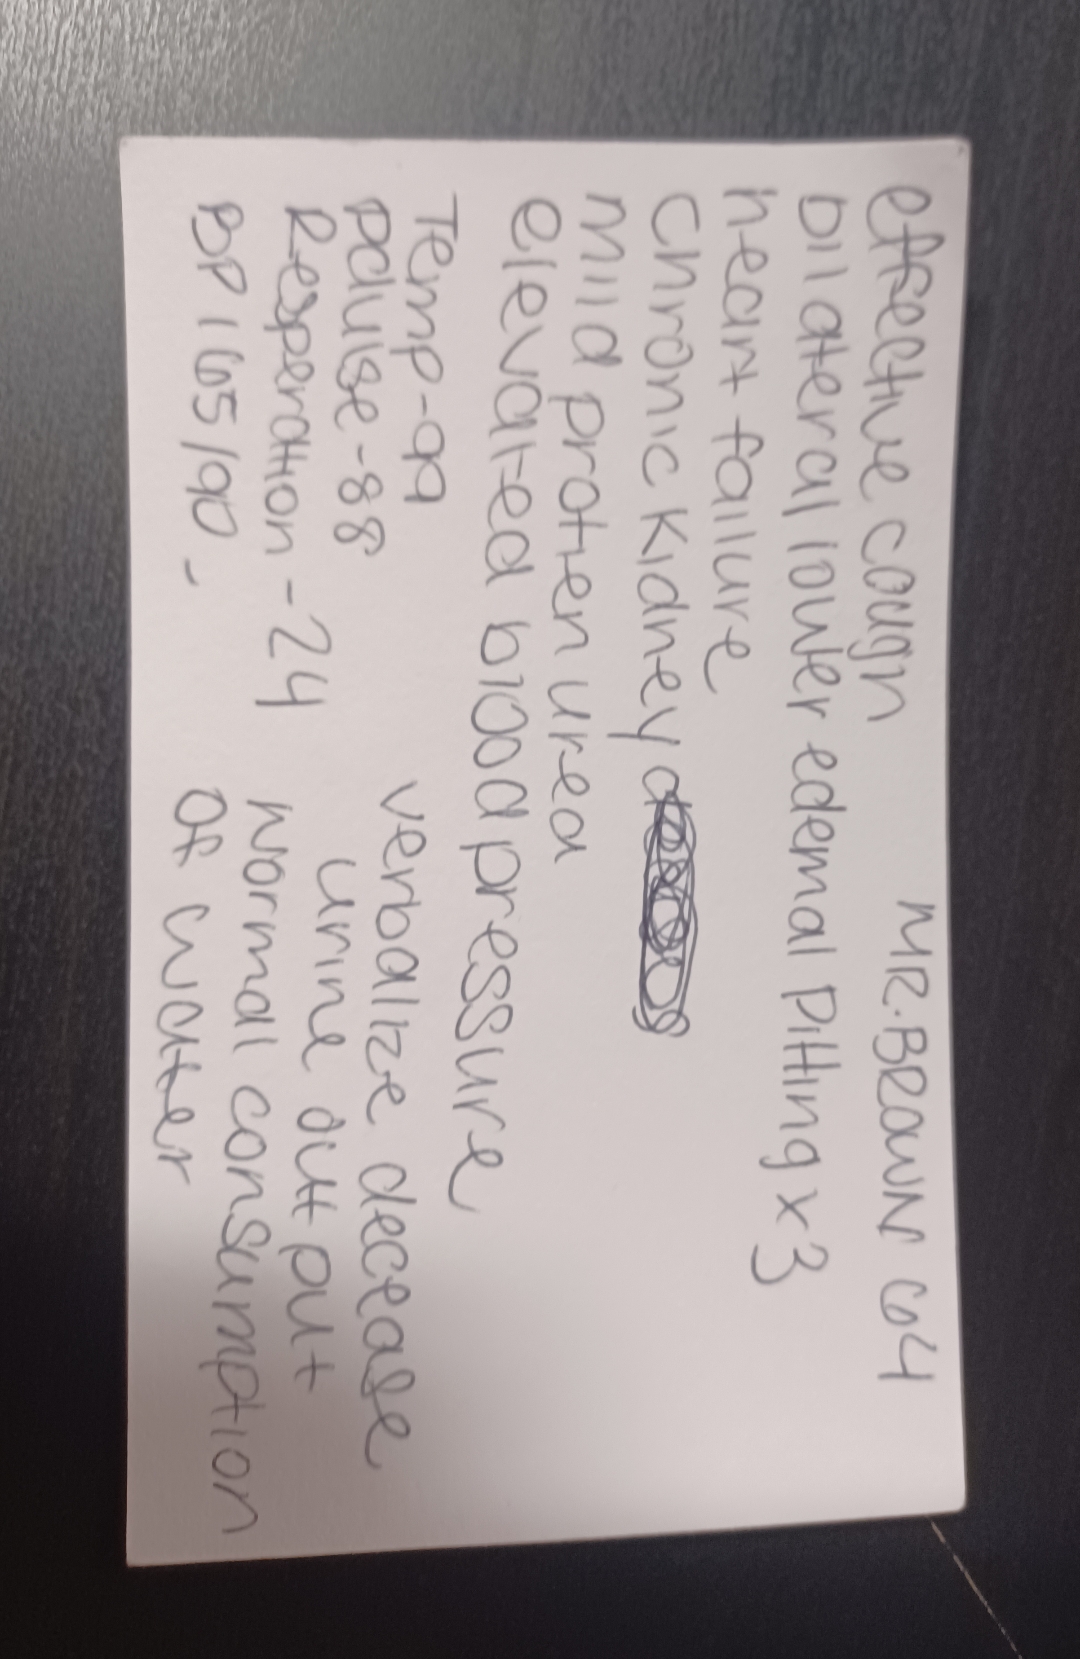 MR. BROWN 64
effective cough
bilateral lower edemal pitting x3
heart failure
Chronic Kidney
mild protien urea
elevated blood pressure
Temp-99
pulse-88
Resperation-24
BP 165/90
verbalize decease
urine out put
normal consumption
of water